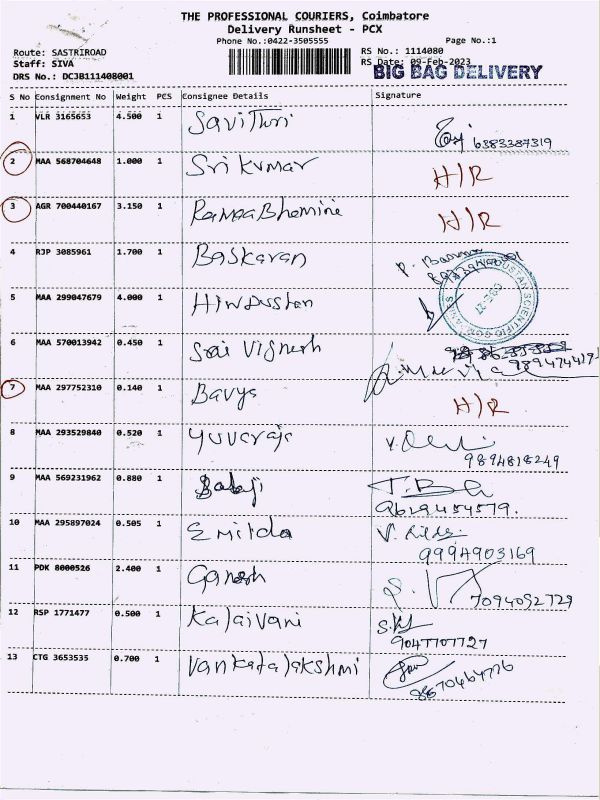 THE PROFESSIONAL COURIERS, Coimbatore
Delivery Runsheet - PCX
Phone No.:0422-3505555
Page No.:1
Route: SASTRIROAD
RS No.: 1114080
Staff: SIVA
RS Date: 09-Feb-2023
DRS No.: DC3B111408001
BIG BAG DELIVERY
S No Consignment No Weight PCS Consignee Details Signature
1 VLR 3165653 4.500 1 Savithri 6383387319
2 MAA 568704648 1.000 1 Sri Kumar H/R
3 AGR 700440167 3.150 1 H/R
4 RJP 3085961 1.700 1 Baskaran
5 MAA 299047679 4.000 1 Hindusstan
6 MAA 570013942 0.450 1 Sai Vignesh
7 MAA 297752310 0.140 1 Bavya H/R
8 MAA 293529840 0.520 1 Yuvaraja 9894818249
9 MAA 569231962 0.880 1 Balaji 9629454579.
10 MAA 295897024 0.505 1 Emilda 9994903169
11 PDK 8000526 2.400 1 Ganesh 7094092729
12 RSP 1771477 0.500 1 Kalaivani 9047707727
13 CTG 3653535 0.700 1 Vankatalakshmi 8870464776